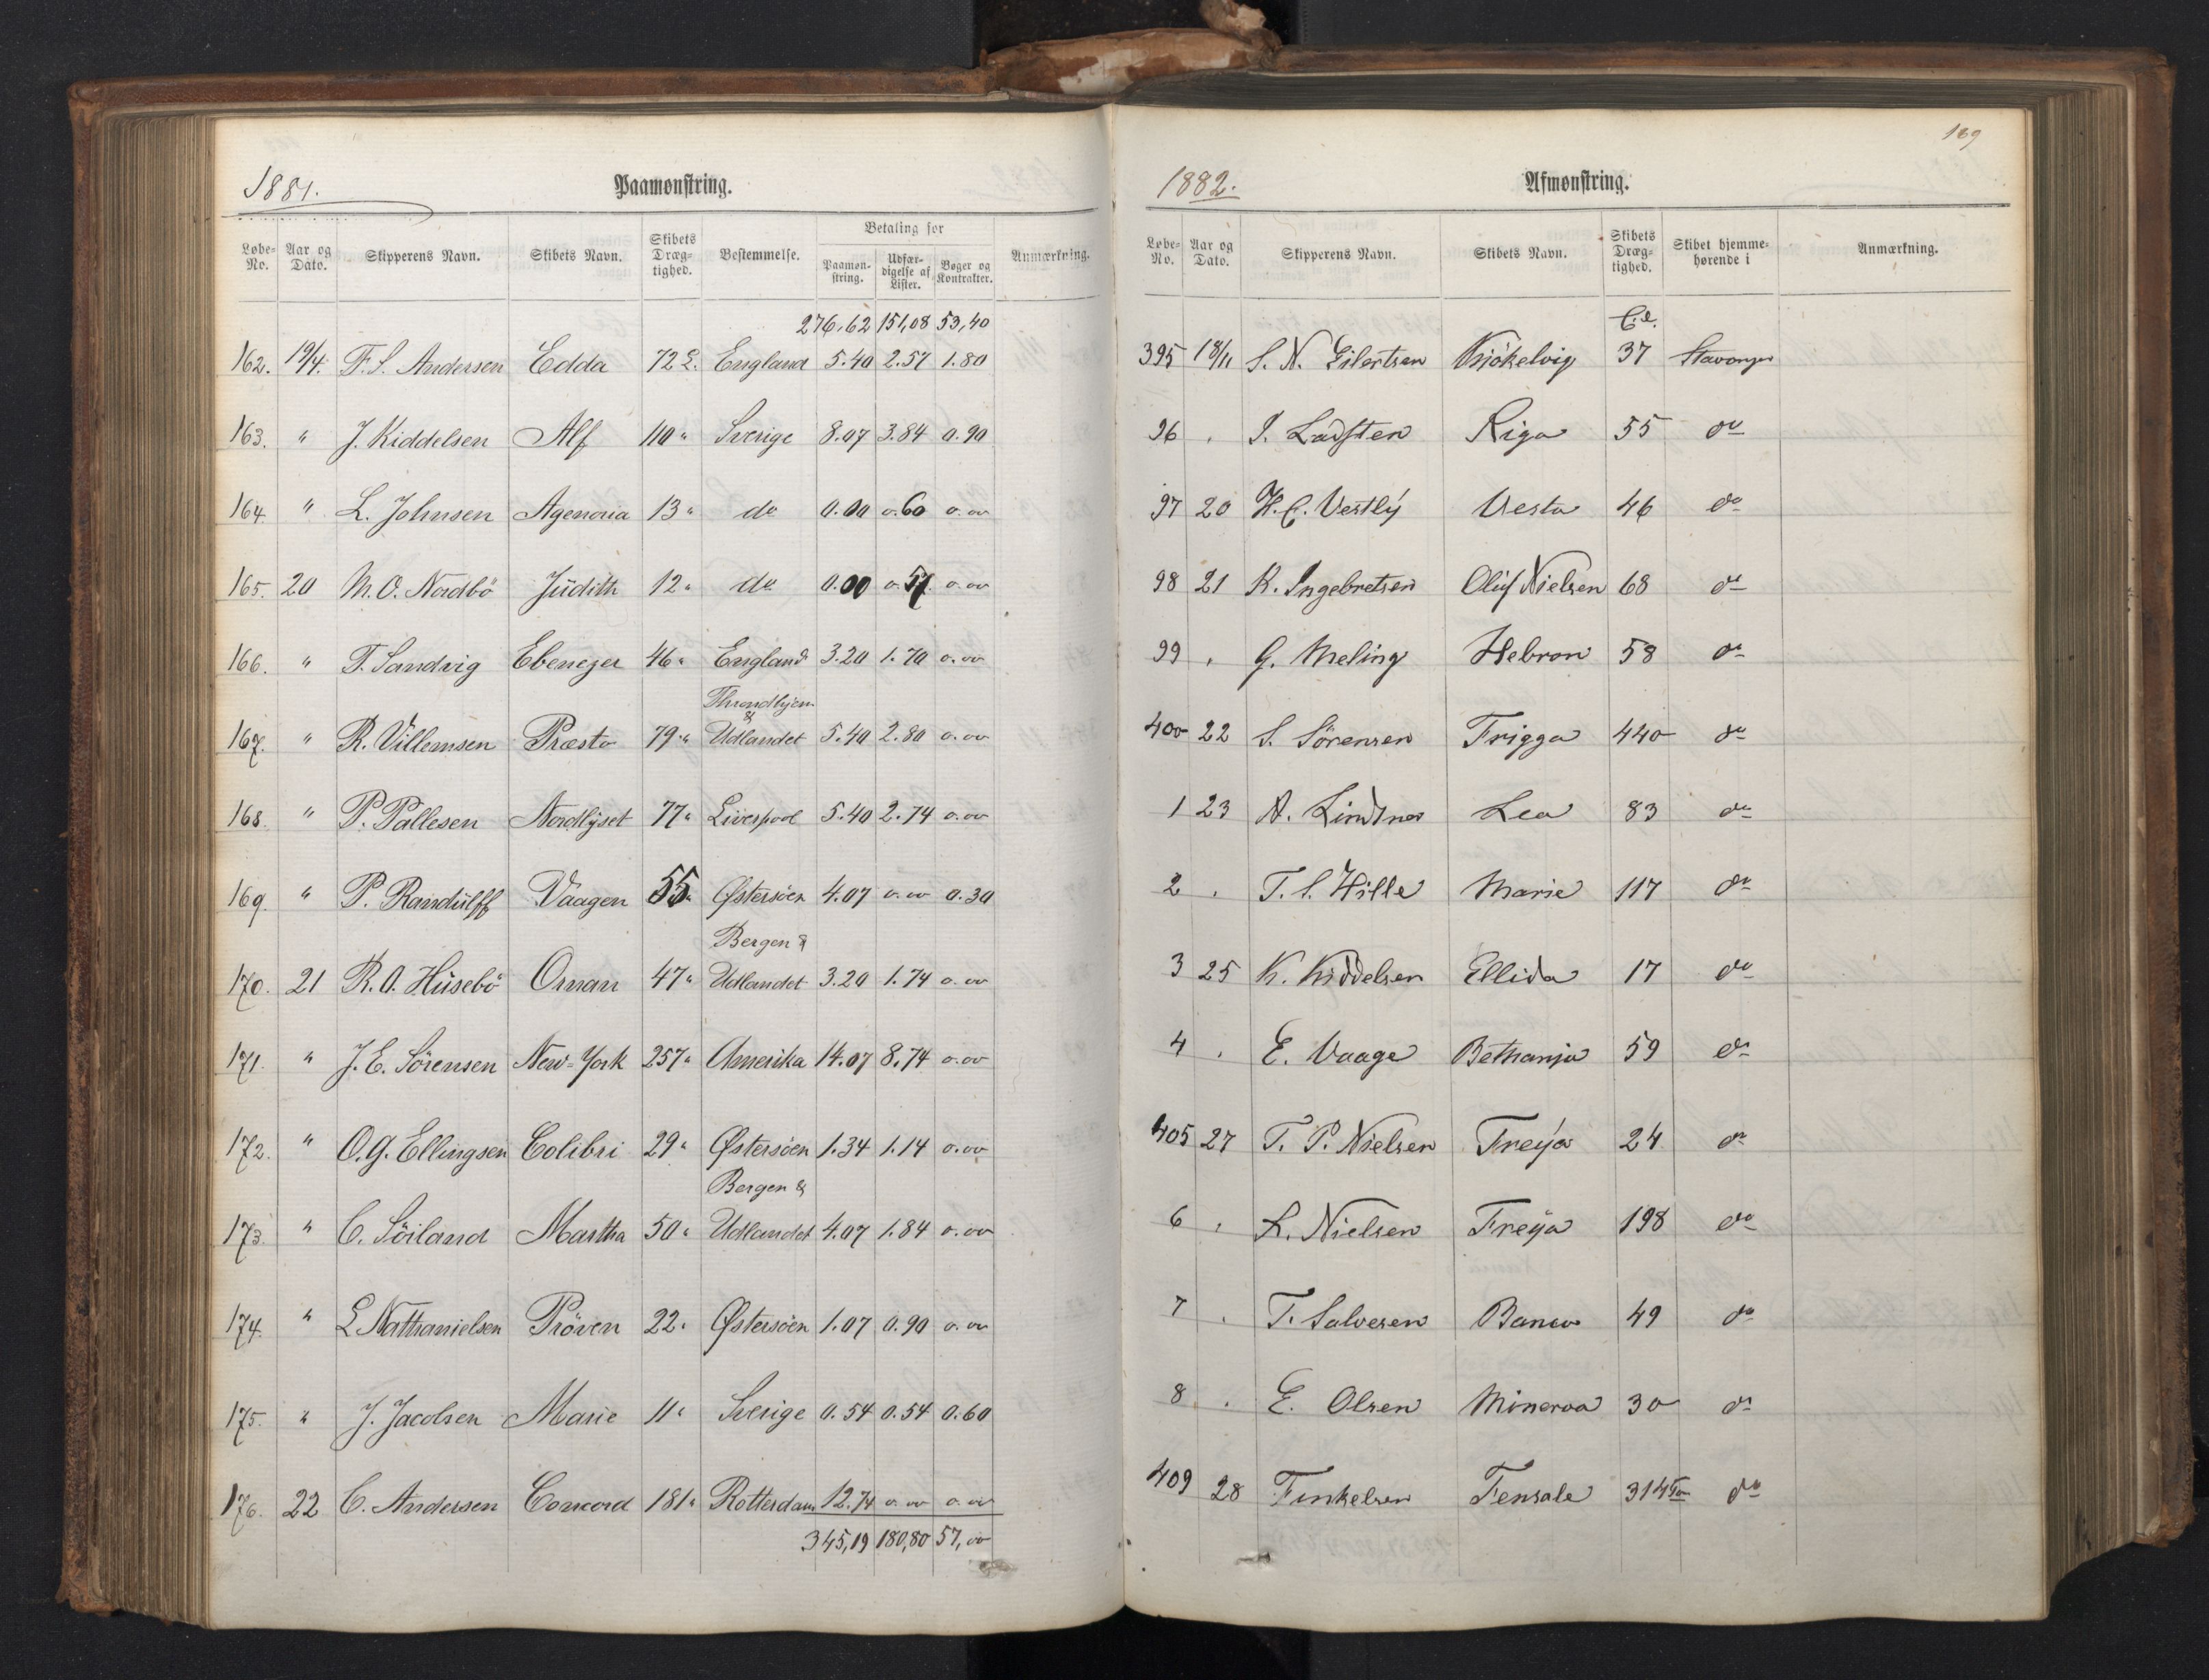 1881. Paamønstring.
Løbe-No. Aar og Dato. Skipperens Navn. Skibets Navn. Skibets Dræg-tighed. Bestemmelse. Betaling for Paamøn-string. Udfær-digelse af Lister. Bøger og Kontrakter. Anmærkning.
276,62 151,08 53,40
162. 19/4. F. S. Andersen Edda 72 C. England 5.40 2.57 1.80
163. " J. Kiddelsen Alf 110 " Sverige 8.07 3.84 0.90
164. " L. Johnsen Agenoria 13 " do 0.00 0.60 0.00
165. 20 M. O. Nordbö Judith 12 " do 0.00 0.57. 0.00
166. " T. Sandvig Ebenezer 46 " England 3.20 1.70 0.00
Throndhjem &
167. " R. Villemsen Præsto 79 " Udlandet 5.40 2.80 0.00
168. " P. Pallesen Nordlyset 77 " Liverpool 5.40 2.74 0.00
169. " P. Randulff Vaagen 55 " Østersöen 4.07 0.00 0.30
Bergen &
170. 21 R. O. Husebö Oman 47 " Udlandet 3.20 1.74 0.00
171. " J. E. Sörensen New-York 257 " Amerika 14.07 8.74 0.00
172. " O. G. Ellingsen Colibri 29 " Østersöen 1.34 1.14 0.00
Bergen &
173. " C. Söiland Martha 50 " Udlandet 4.07 1.84 0.00
174. " L Nathanielsen Pröven 22 " Østersöen 1.07 0.90 0.00
175. " J. Jacobsen Marie 11 " Sverige 0.54 0.54 0.60
176. 22 C. Andersen Concord 181 " Rotterdam 12.74 0.00 0.00
345,19 180,80 57,00
189
1882. Afmønstring.
Løbe-No. Aar og Dato. Skipperens Navn. Skibets Navn. Skibets Dræg-tighed. Skibet hjemme-hørende i Anmærkning.
C.L.
395 18/11 S. N. Eilertsen Kjökelvig 37 Stavanger
96 . J. Ladsten Riga 55 do
97 20 H. C. Vestly Vesta 46 do
98 21 K. Ingebretsen Oluf Nielsen 68 do
99 . G. Meling Hebron 58 do
400 22 S. Sörensen Frigga 440 do
1 23 A. Lindtner Lea 83 do
2 . T. S. Hille Marie 117 do
3 25 K. Kiddelsen Ellida 17 do
4 . E. Vaage Bethanja 59 do
405 27 T. P. Nielsen Freya 24 do
6 . L. Nielsen Freya 198 do
7 . T. Salvesen Banco 49 do
8 . E. Olsen Minerva 30 do
409 28 Finkelsen Fensale 314 Ton do